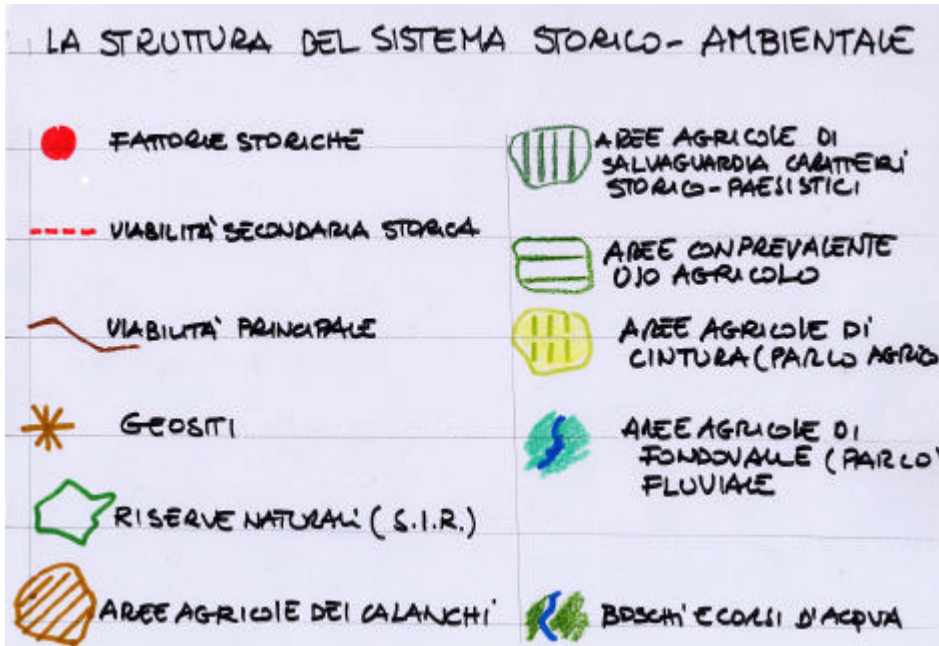 LA STRUTTURA DEL SISTEMA STORICO - AMBIENTALE
FATTORIE STORICHE
VIABILITÀ SECONDARIA STORICA
VIABILITÀ PRINCIPALE
GEOSITI
RISERVE NATURALI (S.I.R.)
AREE AGRICOLE DEI CALANCHI
AREE AGRICOLE DI
SALVAGUARDIA CARATTERI
STORICO-PAESISTICI
AREE CON PREVALENTE
USO AGRICOLO
AREE AGRICOLE DI
CINTURA (PARCO AGRIC
AREE AGRICOLE DI
FONDOVALLE (PARCO
FLUVIALE
BOSCHI E CORSI D'ACQUA